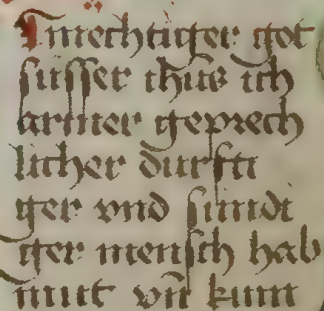 Amechtiger got
süsser ihus ich
armer geprech
licher durfti
ger vnd sundi
ger mensch hab
mitt vñ kum